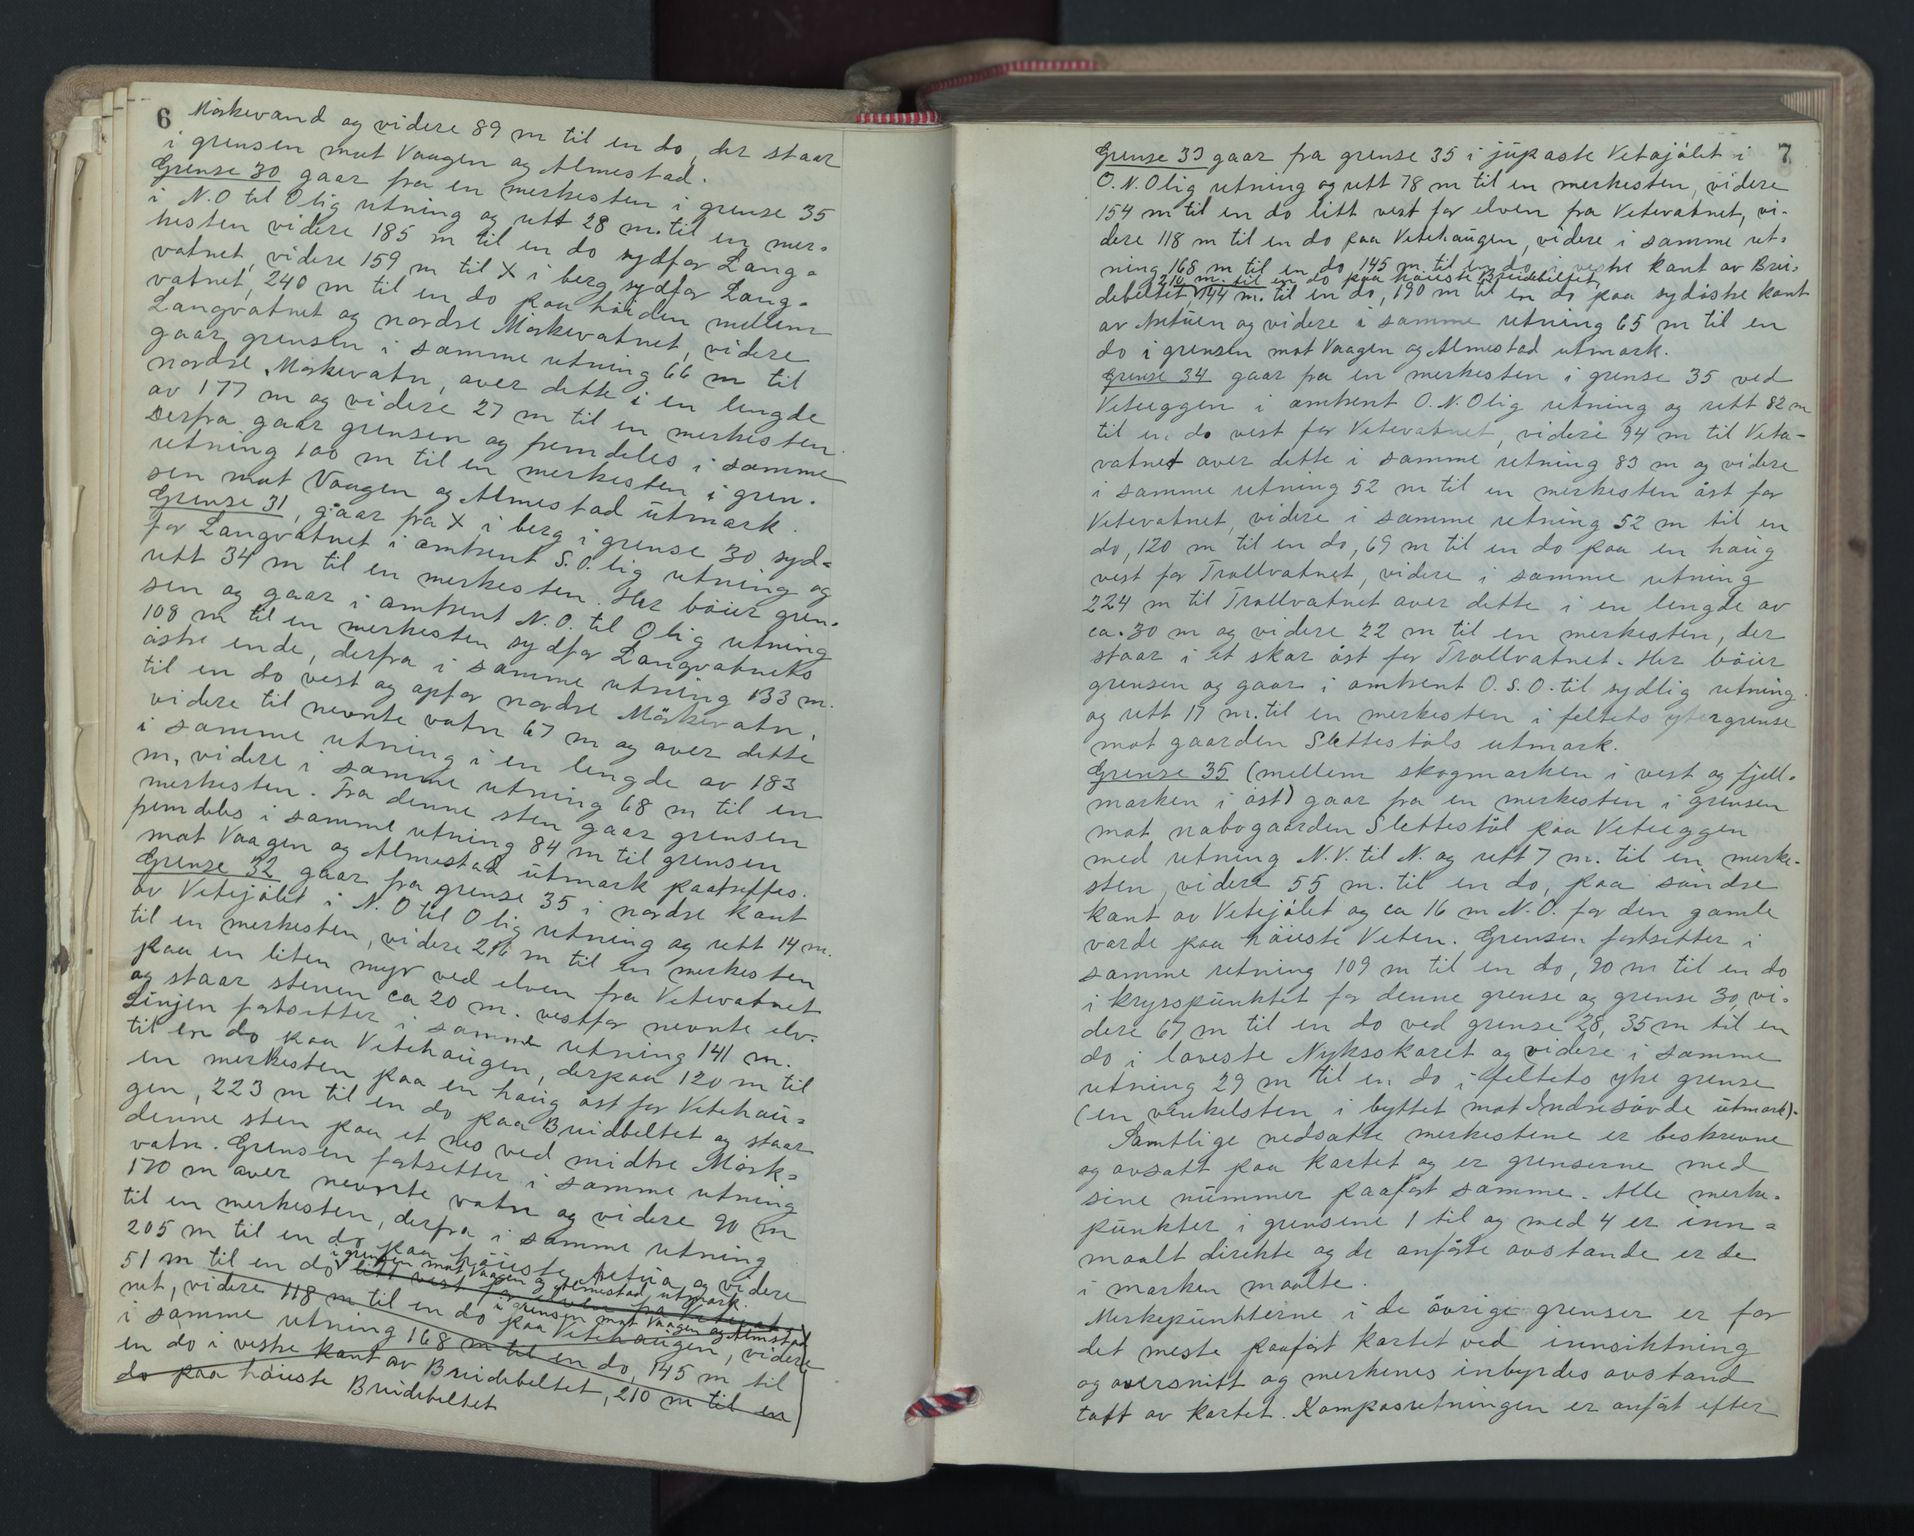 6
Mørkevand og videre 89 m til en do, der staar
i grensen mot Vaagen og Almestad.
Grense 30 gaar fra en merkesten i grense 35
i N.O til Olig retning og rett 28 m. til en mer-
kesten videre 185 m til en do sydfor Lang-
vatnet, videre 159 m til X i berg sydfor Lang-
vatnet, 240 m til en do paa høiden mellem
Langvatnet og nordre Mørkevatnet, videre
gaar grensen i samme retning 66 m til
nordre Mørkevatn, over dette i en lengde
av 177 m og videre 27 m til en merkesten.
Derfra gaar grensen og fremdeles i samme
retning 100 m til en merkesten i gren-
sen mot Vaagen og Almestad utmark.
Grense 31, gaar fra X i berg i grense 30 syd-
for Langvatnet i omtrent S.O.lig retning og
rett 34 m til en merkesten. Her bøier gren-
sen og gaar i omtrent N.O. til Olig retning
108 m til en merkesten sydfor Langvatnets
østre ende, derfra i samme retning 133 m.
til en do vest og opfor nordre Mørkevatn,
videre til nevnte vatn 67 m og over dette
i samme retning i en lengde av 183
m, videre i samme retning 68 m til en
merkesten. Fra denne sten gaar grensen
fremdeles i samme retning 84 m til grensen
mot Vaagen og Almestad utmark paatreffes.
Grense 32 gaar fra grense 35 i nordre kant
av Vetejølet i N.O til Olig retning og rett 14 m.
til en merkesten, videre 216 m til en merkesten
paa en liten myr ved elven fra Vetevatnet
og staar stenen ca 20 m. vestfor nevnte elv.
Linjen fortsetter i samme retning 141 m.
til en do paa Vetehaugen, derpaa 120 m til
en merkesten paa en haug øst for Vetehau-
gen, 223 m til en do paa Breidbeltet og staar
denne sten paa et nes ved midtre Mørk-
vatn. Grensen fortsetter i samme retning
170 m over nevnte vatn og videre 90 m
til en merkesten, derfra i samme retning
205 m til en do paa høieste Netua og videre
i grensen mot Vaagen og Almestad utmark.
51 m til en do litt vest for elven fra Vetevat-
i grensen mot Vaagen og Almestad
net, videre 118 m til en do paa Vetehaugen, videre
i samme retning 168 m til en do, 145 m til
en do i vestre kant av Breidebeltet, 210 m til en
do paa høieste Breidebeltet
7
Grense 33 gaar fra grense 35 i jupaste Vetajølet i
O.N.Olig retning og rett 78 m til en merkesten, videre
154 m til en do litt vest for elven fra Vetevatnet, vi-
dere 118 m til en do paa Vetehaugen, videre i samme ret-
ning 168 m til en do 145 m til en do i vestre kant av Brei-
210 m til en do paa høieste Breidebeltet,
debeltet, 144 m. til en do, 190 m til en do paa sydøstre kant
av Netuen og videre i samme retning 65 m til en
do i grensen mot Vaagen og Almestad utmark.
Grense 34 gaar fra en merkesten i grense 35 ved
Veteeggen i omtrent O.N.Olig retning og rett 82 m
til en do vest for Vetevatnet, videre 94 m til Vete-
vatnet over dette i samme retning 83 m og videre
i samme retning 52 m til en merkesten øst for
Vetevatnet, videre i samme retning 52 m til en
do, 120 m til en do, 69 m til en do paa en haug
vest for Trollvatnet, videre i samme retning
224 m til Trollvatnet over dette i en lengde av
ca. 30 m og videre 22 m til en merkesten, der
staar i et skar øst for Trollvatnet. Her bøier
grensen og gaar i omtrent O.S.O. til sydlig retning
og rett 17 m. til en merkesten i feltets ytergrense
mot gaarden Slettestøls utmark.
Grense 35 (mellem skogmarken i vest og fjell-
marken i øst) gaar fra en merkesten i grensen
mot nabogaarden Slettestøl paa Veteeggen
med retning N.V. til N. og rett 7 m. til en merke-
sten, videre 55 m. til en do, paa søndre
kant av Vetejølet og ca 16 m N.O. for den gamle
varde paa høieste Veten. Grensen fortsetter i
samme retning 109 m til en do, 90 m til en do
i krysspunktet for denne grense og grense 30, vi-
dere 67 m til en do ved grense 28, 35 m til en
do i laveste Nyksskaret og videre i samme
retning 29 m til en do i feltets ytre grense
(en vinkelsten i byttet mot Indresøvde utmark).
Samtlige nedsatte merkestene er beskrevne
og avsatt paa kartet og er grenserne med
sine nummer paaført samme. Alle merke-
punkter i grensene 1 til og med 4 er inn-
maalt direkte og de anførte avstande er de
i marken maalte.
Merkepunkterne i de øvrige grenser er for
det meste paaført kartet ved innsiktning
og oversnitt og merkenes inbyrdes avstand
tatt av kartet. Kompasretningen er anført efter